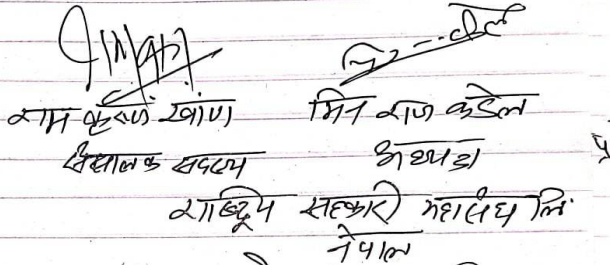 राम कृष्ण खाण
मिन राज कडेल
संचालक सदस्य
अध्यक्ष
राष्ट्रिय सहकारी महासंघ लि.
नेपाल